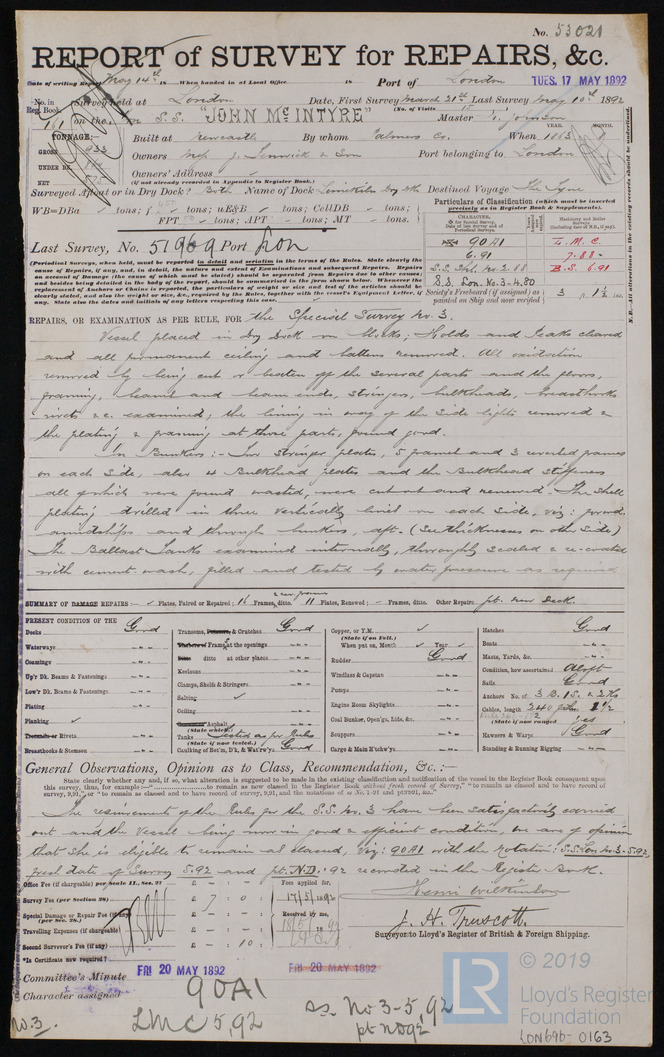 No. 53021
REPORT of SURVEY for REPAIRS, &c.
Date of writing Report May 14th 18 When handed in at Local Office 18 Port of London TUES. 17 MAY 1892
No. in Reg. Book. Survey held at London Date, First Survey March 21st Last Survey May 10th 1892
161 on the S.S. "JOHN McINTYRE" (No. of Visits 15 Master Johnson
TONNAGE:— Built at Newcastle By whom Palmers Co. When 1863 YEAR. MONTH.
GROSS 933 Owners Mess J. Fenwick & Son Port belonging to London
UNDER DK.
NET 575 Owners' Address
(if not already recorded in Appendix to Register Book.)
Surveyed Afloat or in Dry Dock? Both Name of Dock Limekiln Dry Dk Destined Voyage The Tyne
WB=DBa tons; f tons; uE&B tons; CellDB tons;
FPT tons; APT tons; MT tons.
Particulars of Classification (which must be inserted precisely as in Register Book & Supplements).
CHARACTER,
90A1
6.91
S.S. Shl. No 2.88
S.S. Lon. No. 3-4.80
L. M. C.
7.88
B.S. 6.91
Society's Freeboard (if assigned) as painted on Ship and now verified 3 ft. 1½ ins.
N.B.—All alterations in the existing records should be underlined.
Last Survey, No. 51969 Port Lon
(Periodical Surveys, when held, must be reported in detail and seriatim in the terms of the Rules. State clearly the
cause of Repairs, if any, and, in detail, the nature and extent of Examinations and subsequent Repairs. Repairs
on account of Damage (the cause of which must be stated) should be separated from Repairs due to other causes;
and besides being detailed in the body of the report, should be summarised in the form shown below. Whenever the
replacement of Anchors or Chains is reported, the particulars of weight and test of the articles should be
clearly stated, and also the weight or size, &c., required by the Rules, together with the vessel's Equipment Letter, if
any. State also the dates and initials of any letters respecting this case.
REPAIRS, OR EXAMINATION AS PER RULE, FOR the Special Survey No. 3.
Vessel placed in Dry Dock on blocks: Holds and Peaks cleared
and all permanent ceiling and battens removed. All oxidation
removed by being cut or beaten off the several parts and the floors,
framing, beams and beam ends, stringers, bulkheads, breasthooks
rivets &c. examined, the lining in way of the side lights removed &
the plating & framing at those parts, found good.
In Bunkers:- stringer plates, 5 frames and 3 reversed frames
on each side, also 4 Bulkhead plates and the Bulkhead stiffeners
all of which were found wasted, were cut out and renewed. The shell
plating drilled in three vertically lines on each side, viz: forwd.
amidships and through bunkers, aft. (See thicknesses on other side)
The Ballast tanks examined internally, thoroughly scaled & re-coated
with cement wash, filled and tested by water pressure as required
SUMMARY OF DAMAGE REPAIRS:— Plates, Faired or Repaired; 16 Frames, ditto. 11 Plates, Renewed; Frames, ditto. Other Repairs pt. new Deck.
PRESENT CONDITION OF THE
Decks Good
Waterways
Coamings
Up'r Dk. Beams & Fastenings
Low'r Dk. Beams & Fastenings
Plating
Planking
Treenails or Rivets
Breasthooks & Stemson
Transoms, Pointers, & Crutches Good
Timbers of Frame at the openings
Ditto ditto at other places
Keelsons
Clamps, Shelfs & Stringers
Salting
Ceiling
Cement or Asphalt
(State which.)
Tanks Tested as per Rules
(State if now tested.)
Caulking of Bot'm, D'k, & Wat'rw'y: Good
Copper, or Y.M.
(State if on Felt.)
When put on, Month Year
Rudder Good
Windlass & Capstan
Pumps
Engine Room Skylights
Coal Bunker, Open'gs, Lids, &c.
Scuppers
Cargo & Main H'tchw'ys
Hatches Good
Boats
Masts, Yards, &c.
Condition, how ascertained Aloft
Sails Good
Anchors No. of 3 B. 1 S. & 2 Ks
Cables, length 240 fths 1½
(State if now ranged yes
Hawsers & Warps Good
Standing & Running Rigging
General Observations, Opinion as to Class, Recommendation, &c. :—
State clearly whether any and, if so, what alteration is suggested to be made in the existing classification and notification of the vessel in the Register Book consequent upon
this survey, thus, for example :—" to remain as now classed in the Register Book without fresh record of Survey," "to remain as classed and to have record of
survey, 9,91," or "to remain as classed and to have record of survey, 9,91, and the notations of ss No. 1-91 and ptND91, &c."
The requirements of the Rules for the S.S. No. 3 have been satisfactorily carried
out and the Vessel being now in good & efficient condition, we are of opinion
that she is eligible to remain as classed, viz: 90A1 with the notation: S.S. Lon No 3-5.92,
fresh date of Survey 5.92 and pt. N.D. 92 recorded in the Register Book.
Office Fee (if chargeable) per Scale II., Sec. 27 £ : - : -
Survey Fee (per Section 28) £ 7 : 0 : -
Special Damage or Repair Fee (if any) (per Sec. 28.) £ - : - :
Travelling Expenses (if chargeable) £ - : - :
Second Surveyor's Fee (if any) £ - : 10 : -
*Is Certificate now required?
Fees applied for,
17/5/1892
Received by me,
18/5/1892
Henri Wilkinson
J. H. Truscott.
Surveyor to Lloyd's Register of British & Foreign Shipping.
Committee's Minute FRI 20 MAY 1892 FRI 20 MAY 1892
Character assigned 90A1
LMC 5,92
ss. No 3-5,92
pt ND92
No. 3.
LR
© 2019
Lloyd's Register
Foundation
LON696-0163